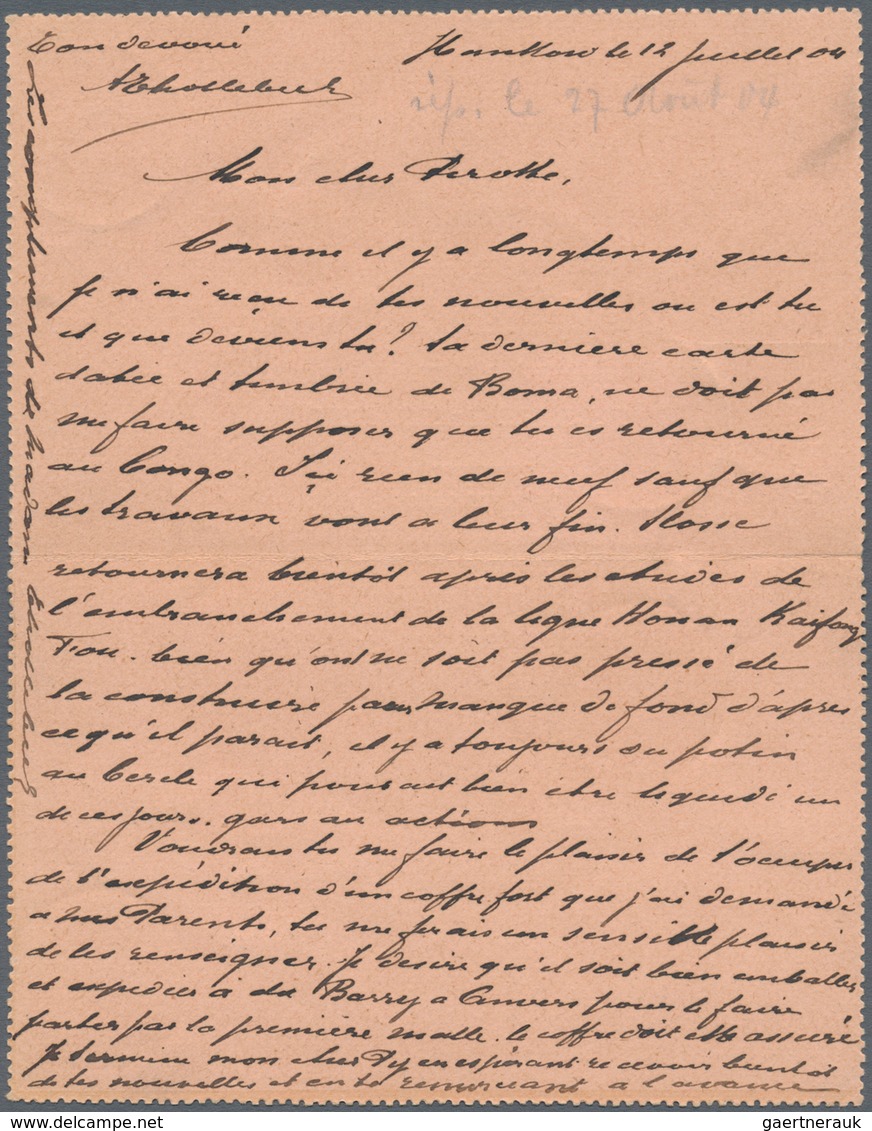 Hankow le 12 juillet 04
rép. le 27 Aout 04
Mon cher Pirotte,
Comme il y a longtemps que
je n'ai reçu de tes nouvelles ou est tu
et que deviens tu? ta dernière carte
datée et timbrée de Boma, ne doit pas
me faire supposer que tu es retourné
au Congo. Ici rien de neuf sauf que
les travaux vont a leur fin.
retournera bientôt après les etudes de
l'embranchement de la ligne Honan Kaifong
Fou. bien qu'on ne soit pas pressé de
la construire pour manque de fond d'après
ce qu'il parait, il y a toujours du potin
au Cercle qui pourait bien être liquidé un
de ces jours. gare au actions
Voudrais tu me faire le plaisir de t'occuper
de l'expédition d'un coffre fort que j'ai demandé
a mes Parents, tu me ferais un sensible plaisir
de les renseigner. Je desire qu'il soit bien emballer
et expédier à du Barry a Anvers pour le faire
partir par la première malle. le coffre doit etre assuré
Je termine mon cher Py en espérant recevoir bientôt
de tes nouvelles et en te remerciant a l'avance
Ton devoué
Les compliments de Madame